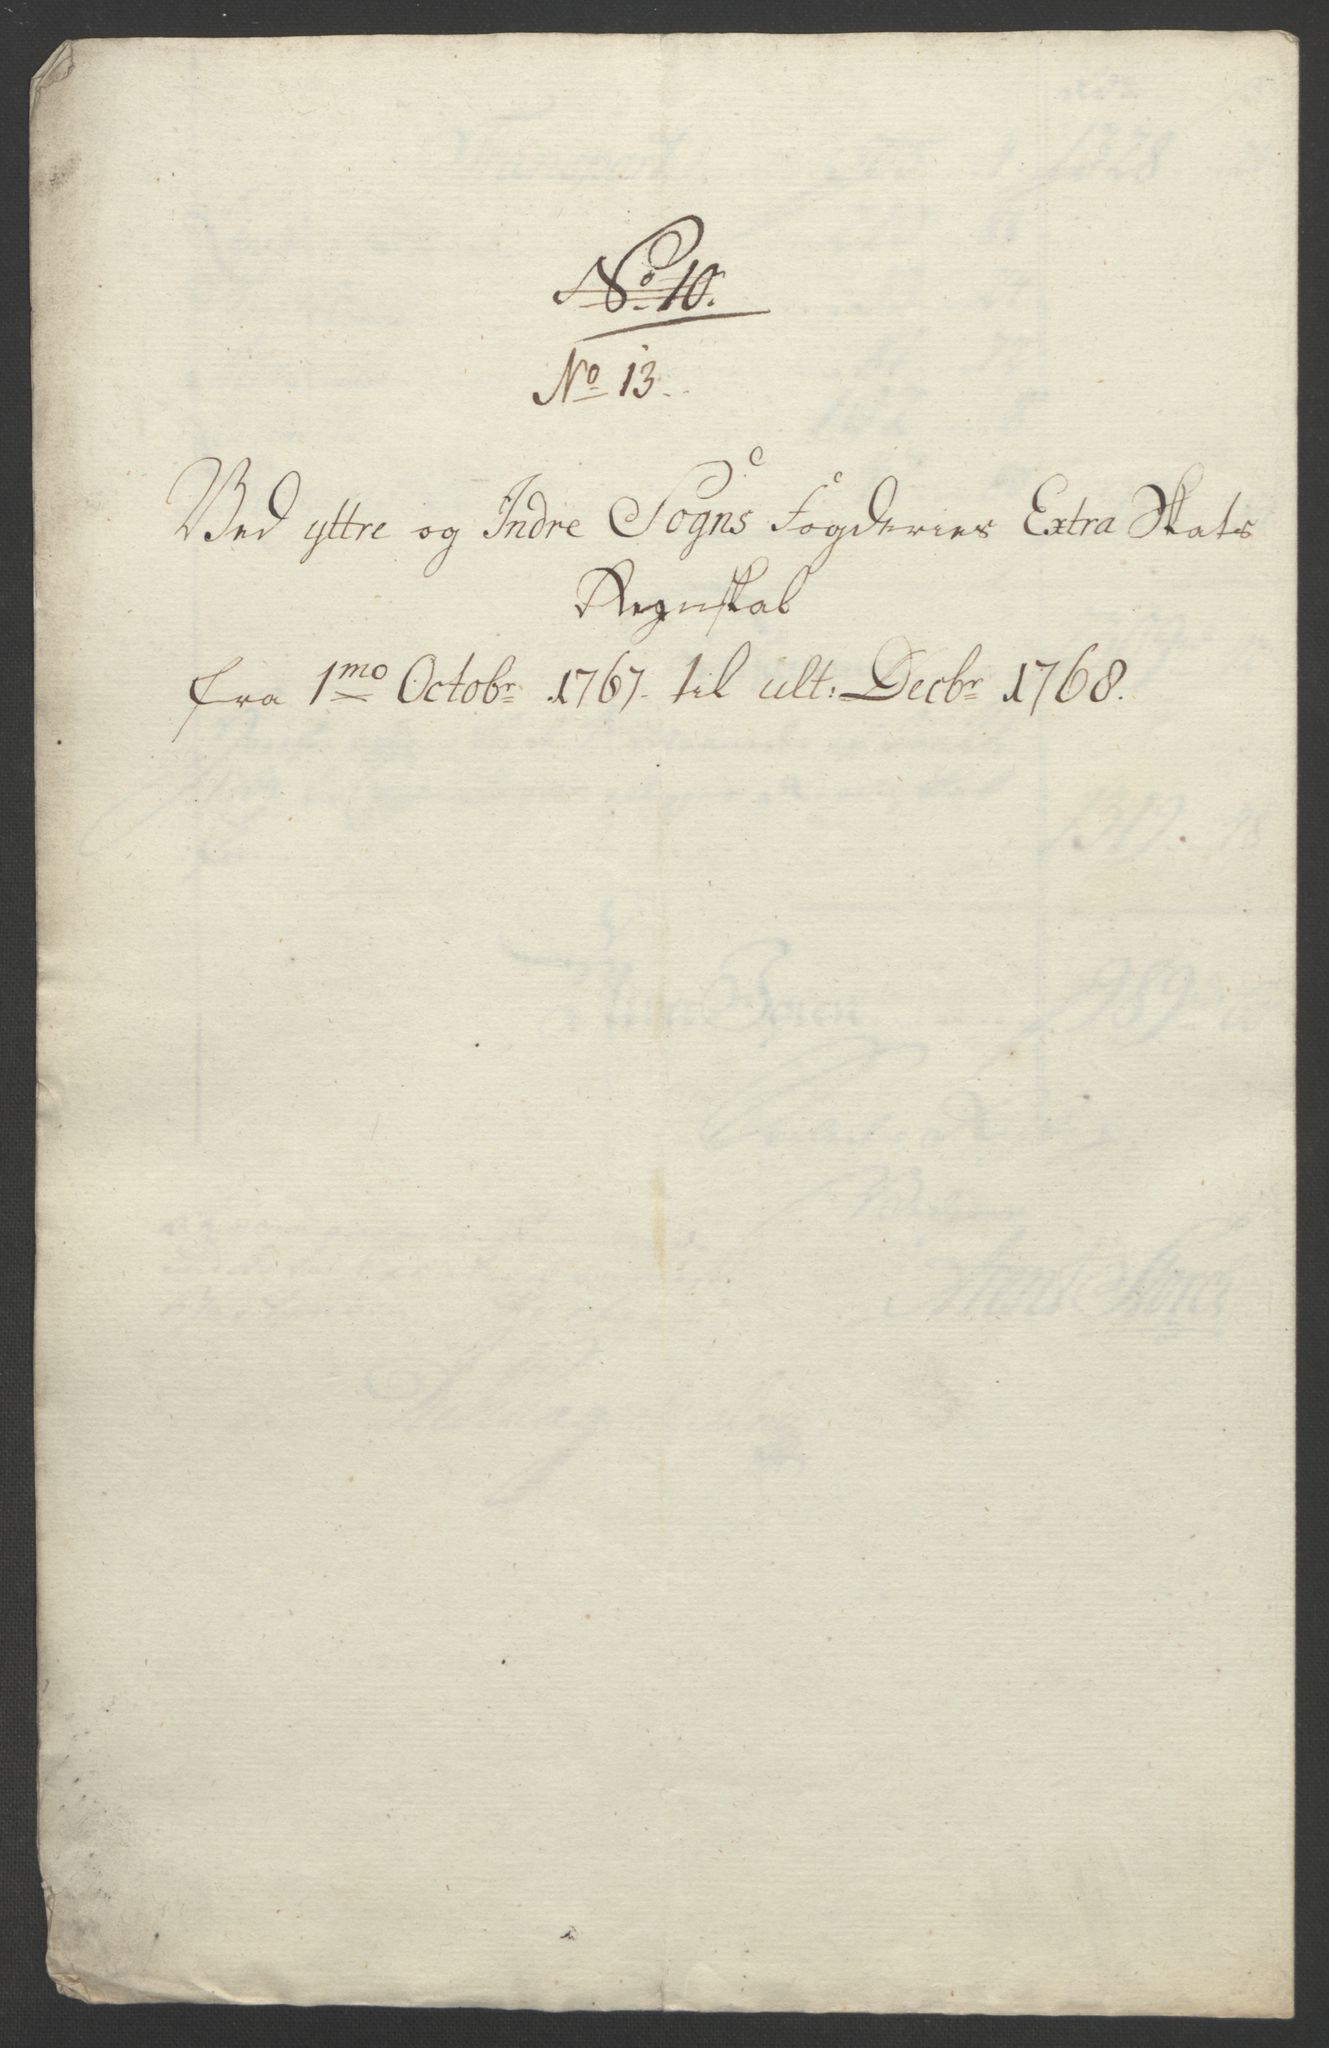 No 10.
No 13.
Ved yttre og Indre Sogns Fogderies Extra Skats
Regnskab
fra 1mo Octobr 1767. til ult: Decbr 1768.